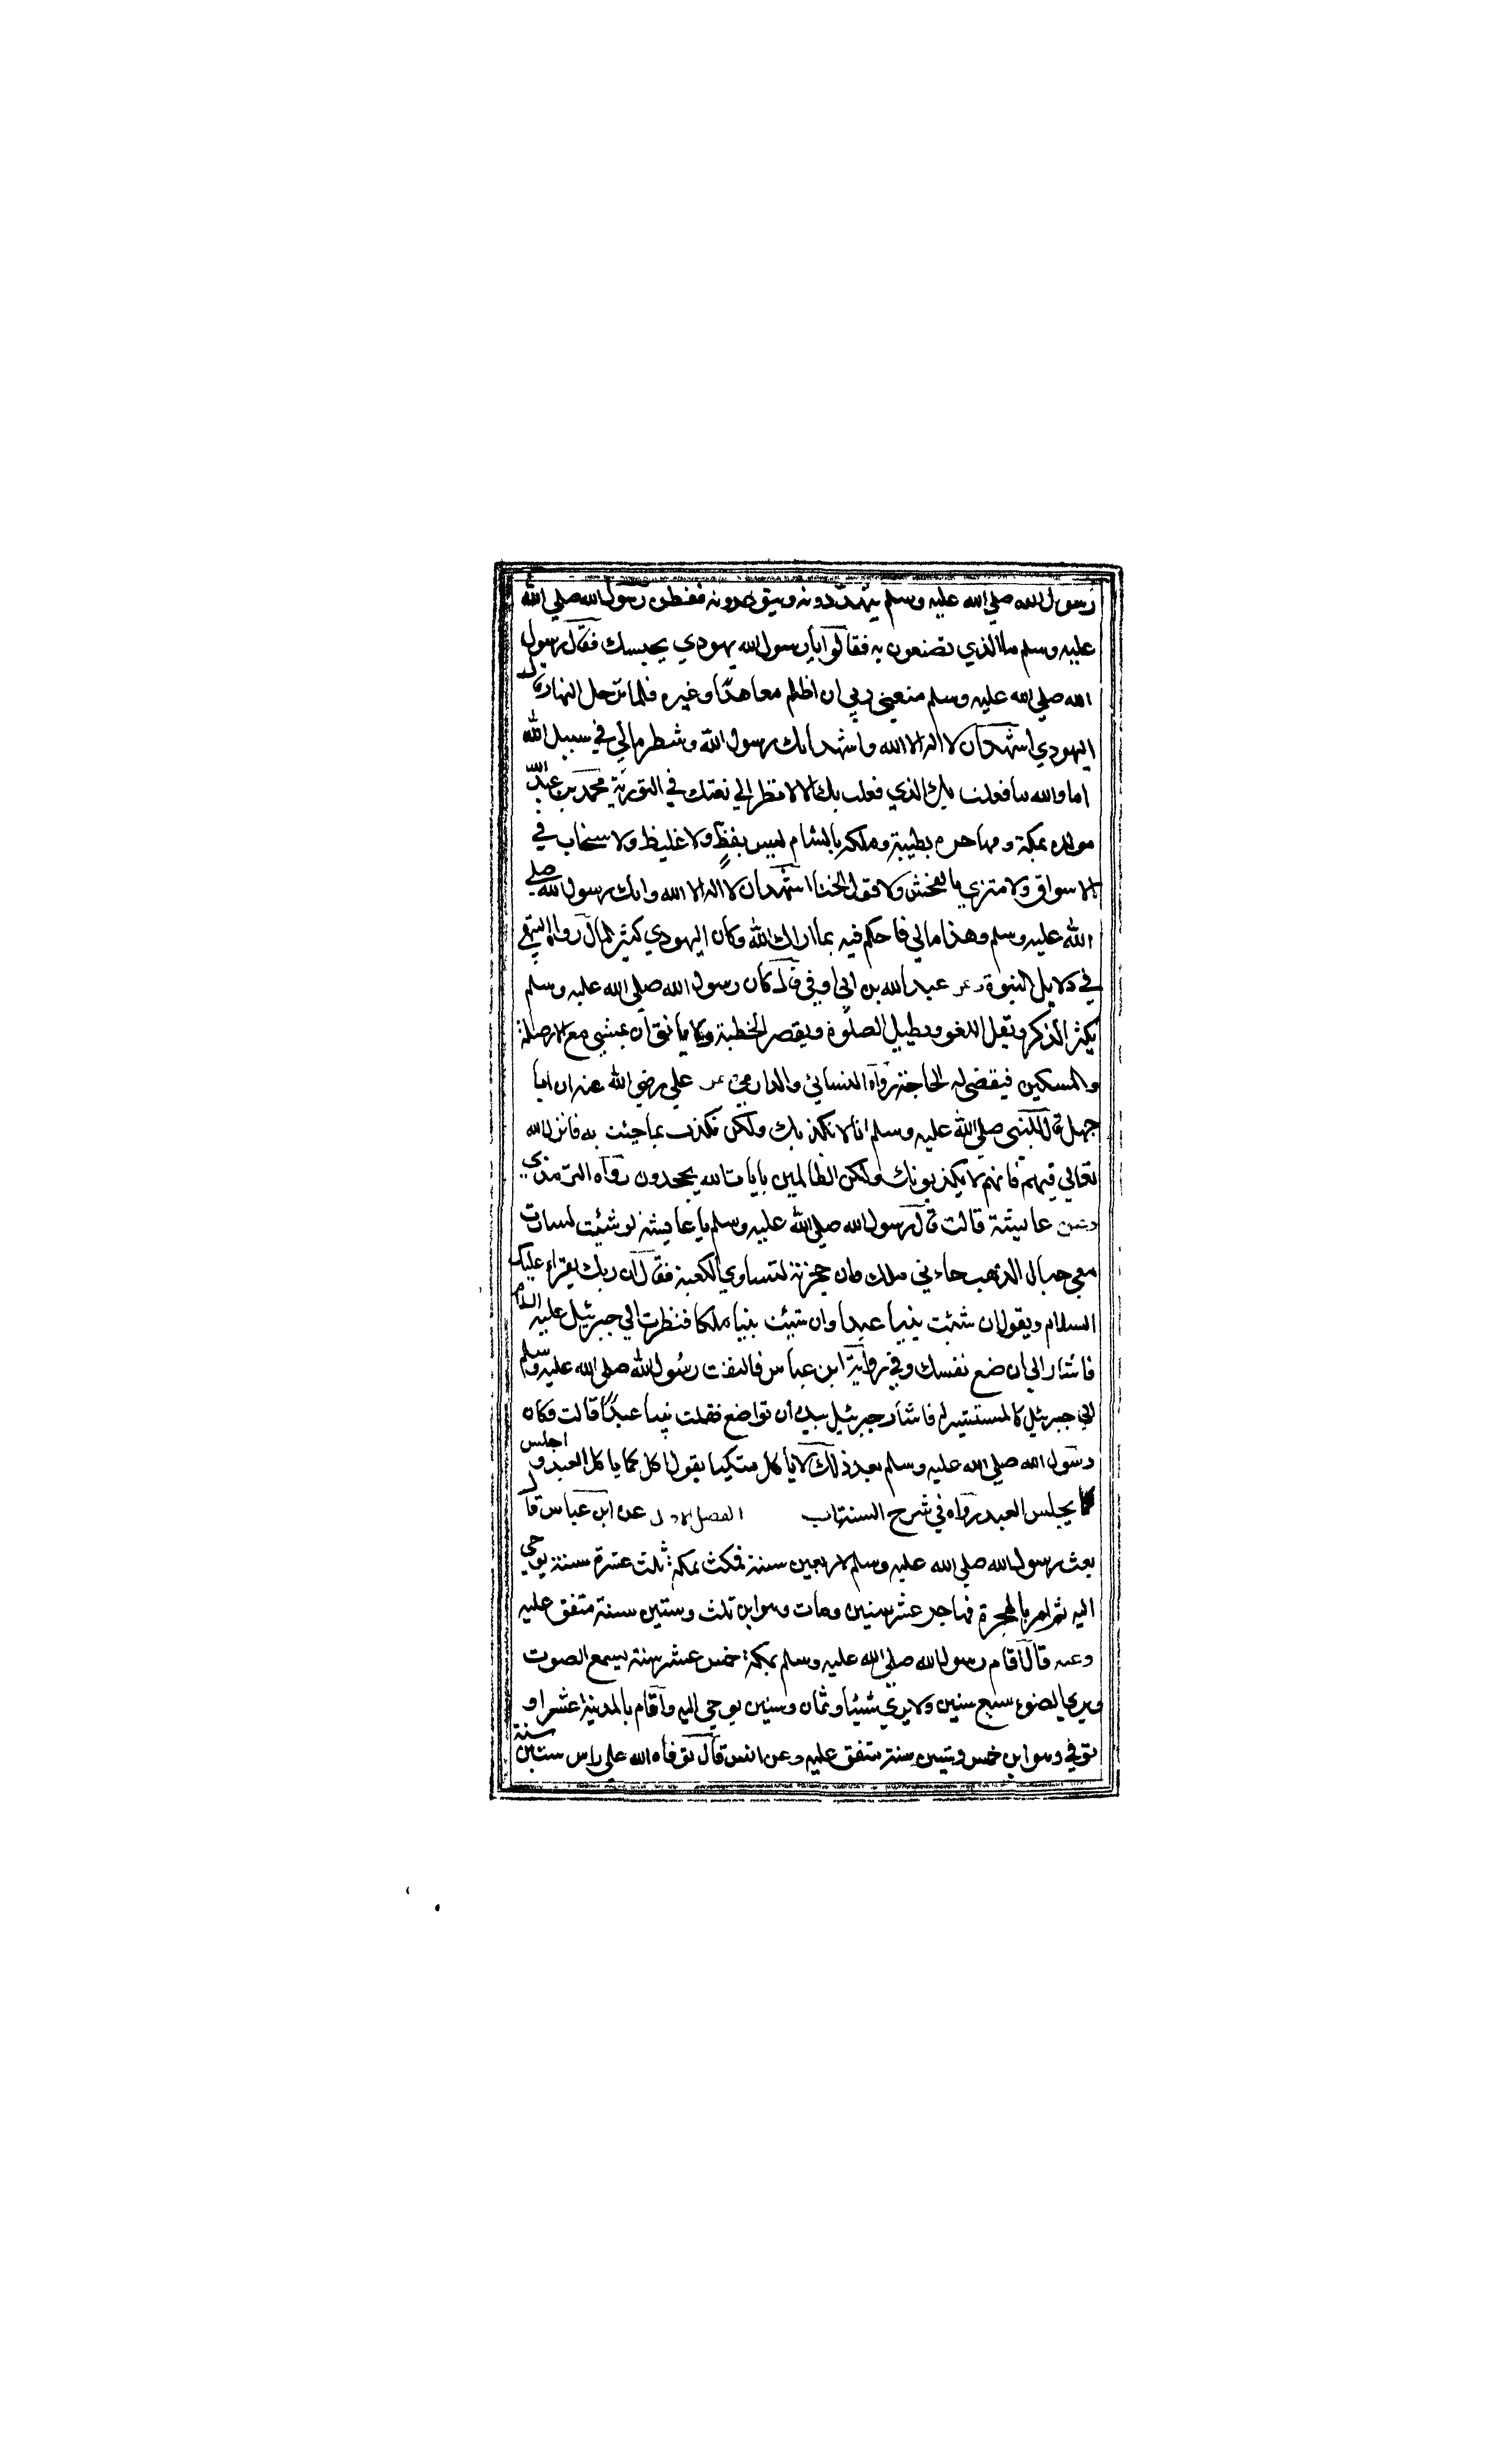 رسول الله صلي الله عليه وسلم يتهددونه ويتوعدونه ففطن رسول الله صلي الله
عليه وسلم ما الذي تصنعون به فقالوا يا رسول الله يهودي يحبسك فقال رسول
الله صلي الله عليه وسلم منعني ربي ان اظلم معاهدا وغيره فلما ترحل النهار قال
اليهودي اشهد ان لا اله الا الله واشهد انك رسول الله وشطر مالي في سبيل الله
اما والله ما فعلت بك الذي فعلت بك الا لانظر الي نعتك في التورية محمد بن عبد الله
مولده بمكة ومهاجره بطيبة وملكه بالشام ليس بفظ ولا غليظ ولا سخاب في
الاسواق ولا متزي بالفحش ولا قول الخنا اشهد ان لا اله الا الله وانك رسول الله صلي
الله عليه وسلم وهذا مالي فاحكم فيه بما اراك الله وكان اليهودي كثير المال رواه البيهقي
في دلايل النبوة وعن عبد الله بن ابي اوفي قال كان رسول الله صلي الله عليه وسلم
يكثر الذكر ويقل اللغو ويطيل الصلوة ويقصر الخطبة ولا يانف ان يمشي مع الارملة
والمسكين فيقضي له الحاجة رواه النسائي والدارمي عن علي رضي الله عنه ان ابا
جهل قال للنبي صلي الله عليه وسلم انا لا نكذبك ولكن نكذب بما جئت به فانزل الله
تعالي فيهم فانهم لا يكذبونك ولكن الظالمين بايات الله يجحدون رواه الترمذي
وعن عايشة قالت قال رسول الله صلي الله عليه وسلم يا عايشة لو شئت لسارت
معي جبال الذهب جاءني ملك وان حجزته لتساوي الكعبة فقال ان ربك يقراء عليك
السلام ويقول ان شئت نبيا عبدا وان شئت نبيا ملكا فنظرت الي جبرئيل عليه السلام
فاشار الي ان ضع نفسك وفي رواية ابن عباس فالتفت رسول الله صلي الله عليه وسلم
الي جبرئيل كالمستشير له فاشار جبرئيل بيده ان تواضع فقلت نبيا عبدا قالت فكان
رسول الله صلي الله عليه وسلم بعد ذلك لا ياكل متكيا يقول اكل كما ياكل العبد و اجلس
كما يجلس العبد رواه في شرح السنة باب الفصل الاول عن ابن عباس قال
بعث رسول الله صلي الله عليه وسلم لاربعين سنة فمكث بمكة ثلث عشرة سنة يوحي
اليه ثم امر بالهجرة فهاجر عشر سنين ومات وهو ابن ثلث وستين سنة متفق عليه
وعنه قال اقام رسول الله صلي الله عليه وسلم بمكة خمس عشر سنة يسمع الصوت
ويري الضوء سبع سنين ولا يري شيئا وثمان وسنين يوحي اليه واقام بالمدينة عشرا و
توفي وهو ابن خمس وستين سنة متفق عليه وعن انس قال توفاه الله علي راس ستين سنة